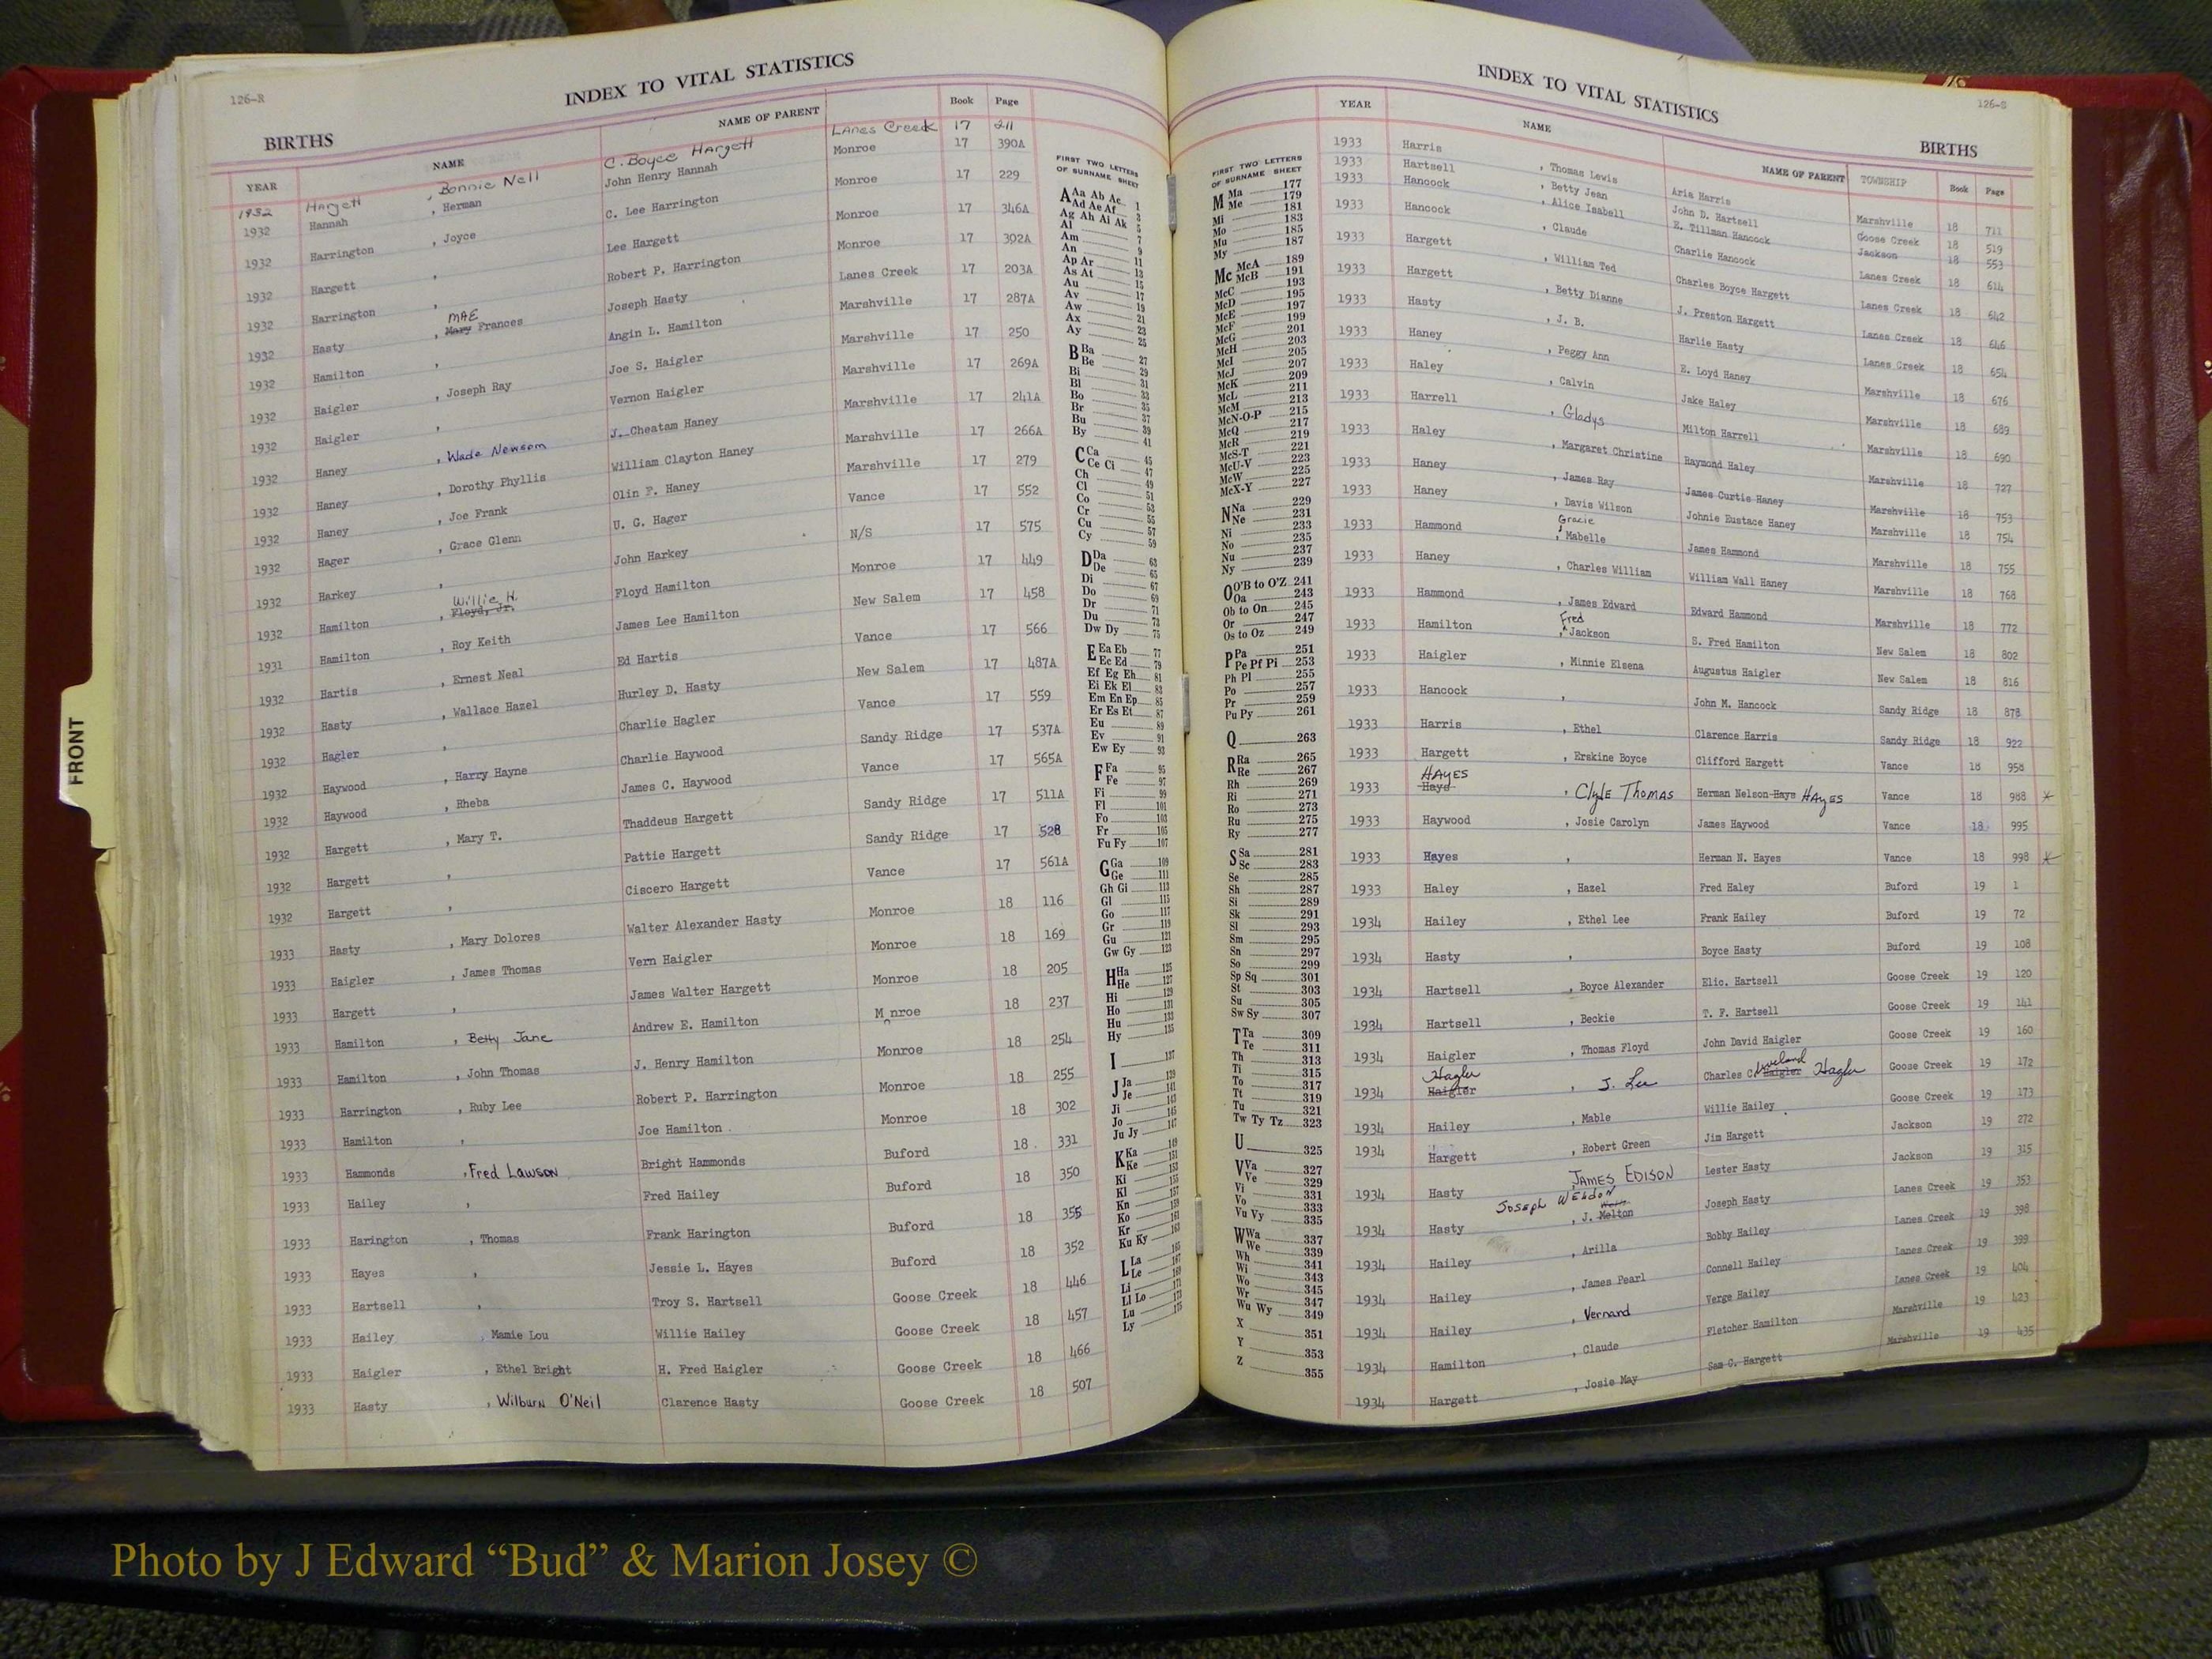 126-R
INDEX TO VITAL STATISTICS
BIRTHS
YEAR NAME NAME OF PARENT Book Page
1932 Hargett , Bonnie Nell C. Boyce Hargett Lanes Creek 17 211
1932 Hannah , Herman John Henry Hannah Monroe 17 390A
1932 Harrington , Joyce C. Lee Harrington Monroe 17 229
1932 Hargett , Lee Hargett Monroe 17 346A
1932 Harrington , Robert P. Harrington Monroe 17 302A
MAE
1932 Hasty , Mary Frances Joseph Hasty Lanes Creek 17 203A
1932 Hamilton , Angin L. Hamilton Marshville 17 287A
1932 Haigler , Joseph Ray Joe S. Haigler Marshville 17 250
1932 Haigler , Vernon Haigler Marshville 17 269A
1932 Haney , Wade Newsom J. Cheatam Haney Marshville 17 241A
1932 Haney , Dorothy Phyllis William Clayton Haney Marshville 17 266A
1932 Haney , Joe Frank Olin F. Haney Marshville 17 279
1932 Hager , Grace Glenn U. G. Hager Vance 17 552
1932 Harkey , John Harkey N/S 17 575
Willie H.
1932 Hamilton , Floyd, Jr. Floyd Hamilton Monroe 17 449
1931 Hamilton , Roy Keith James Lee Hamilton New Salem 17 458
1932 Hartis , Ernest Neal Ed Hartis Vance 17 566
1932 Hasty , Wallace Hazel Hurley D. Hasty New Salem 17 487A
1932 Hagler , Charlie Hagler Vance 17 559
1932 Haywood , Harry Hayne Charlie Haywood Sandy Ridge 17 537A
1932 Haywood , Rheba James C. Haywood Vance 17 565A
1932 Hargett , Mary T. Thaddeus Hargett Sandy Ridge 17 511A
1932 Hargett , Pattie Hargett Sandy Ridge 17 528
1932 Hargett , Ciscero Hargett Vance 17 561A
1933 Hasty , Mary Dolores Walter Alexander Hasty Monroe 18 116
1933 Haigler , James Thomas Vern Haigler Monroe 18 169
1933 Hargett , James Walter Hargett Monroe 18 205
1933 Hamilton , Betty Jane Andrew E. Hamilton M nroe 18 237
1933 Hamilton , John Thomas J. Henry Hamilton Monroe 18 254
1933 Harrington , Ruby Lee Robert P. Harrington Monroe 18 255
1933 Hamilton , Joe Hamilton Monroe 18 302
1933 Hammonds , Fred Lawson Bright Hammonds Buford 18 331
1933 Hailey , Fred Hailey Buford 18 350
1933 Harington , Thomas Frank Harington Buford 18 355
1933 Hayes , Jessie L. Hayes Buford 18 352
1933 Hartsell , Troy S. Hartsell Goose Creek 18 446
1933 Hailey , Mamie Lou Willie Hailey Goose Creek 18 457
1933 Haigler , Ethel Bright H. Fred Haigler Goose Creek 18 466
1933 Hasty , Wilburn O'Neil Clarence Hasty Goose Creek 18 507
FIRST TWO LETTERS
OF SURNAME SHEET
A Aa Ab Ac 1
Ad Ae Af 3
Ag Ah Ai Ak 5
Al 7
Am 9
An 11
Ap Ar 13
As At 15
Au 17
Av 19
Aw 21
Ax 23
Ay 25
B Ba 27
Be 29
Bi 31
Bl 33
Bo 35
Br 37
Bu 39
By 41
C Ca 45
Ce Ci 47
Ch 49
Cl 51
Co 53
Cr 55
Cu 57
Cy 59
D Da 63
De 65
Di 67
Do 69
Dr 71
Du 73
Dw Dy 75
E Ea Eb 77
Ec Ed 79
Ef Eg Eh 81
Ei Ek El 83
Em En Ep 85
Er Es Et 87
Eu 89
Ev 91
Ew Ey 93
F Fa 95
Fe 97
Fi 99
Fl 101
Fo 103
Fr 105
Fu Fy 107
G Ga 109
Ge 111
Gh Gi 113
Gl 115
Go 117
Gr 119
Gu 121
Gw Gy 123
H Ha 125
He 127
Hi 129
Ho 131
Hu 133
Hy 135
I 137
J Ja 139
Je 141
Ji 143
Jo 145
Ju Jy 147
K Ka 149
Ke 151
Ki 153
Kl 155
Kn 157
Ko 159
Kr 161
Ku Ky 163
L La 165
Le 167
Li 169
Ll Lo 171
Lu 173
Ly 175
FRONT
126-S
INDEX TO VITAL STATISTICS
BIRTHS
FIRST TWO LETTERS
OF SURNAME SHEET
M Ma 177
Me 179
Mi 181
Mo 183
Mu 185
My 187
Mc McA 189
McB 191
McC 193
McD 195
McE 197
McF 199
McG 201
McH 203
McI 205
McJ 207
McK 209
McL 211
McM 213
McN-O-P 215
McQ 217
McR 219
McS-T 221
McU-V 223
McW 225
McX-Y 227
N Na 229
Ne 231
Ni 233
No 235
Nu 237
Ny 239
O O'B to O'Z 241
Oa 243
Ob to On 245
Or 247
Os to Oz 249
P Pa 251
Pe Pf Pi 253
Ph Pl 255
Po 257
Pr 259
Pu Py 261
Q 263
R Ra 265
Re 267
Rh 269
Ri 271
Ro 273
Ru 275
Ry 277
S Sa 281
Sc 283
Se 285
Sh 287
Si 289
Sk 291
Sl 293
Sm 295
Sn 297
So 299
Sp Sq 301
St 303
Su 305
Sw Sy 307
T Ta 309
Te 311
Th 313
Ti 315
To 317
Tt 319
Tu 321
Tw Ty Tz 323
U 325
V Va 327
Ve 329
Vi 331
Vo 333
Vu Vy 335
W Wa 337
We 339
Wh 341
Wi 343
Wo 345
Wr 347
Wu Wy 349
X 351
Y 353
Z 355
YEAR NAME NAME OF PARENT TOWNSHIP Book Page
1933 Harris , Thomas Lewis Aria Harris Marshville 18 711
1933 Hartsell , Betty Jean John D. Hartsell Goose Creek 18 519
1933 Hancock , Alice Isabell E. Tillman Hancock Jackson 18 553
1933 Hancock , Claude Charlie Hancock Lanes Creek 18 614
1933 Hargett , William Ted Charles Boyce Hargett Lanes Creek 18 642
1933 Hargett , Betty Dianne J. Preston Hargett Lanes Creek 18 646
1933 Hasty , J. B. Harlie Hasty Lanes Creek 18 654
1933 Haney , Peggy Ann E. Loyd Haney Marshville 18 676
1933 Haley , Calvin Jake Haley Marshville 18 689
1933 Harrell , Gladys Milton Harrell Marshville 18 690
1933 Haley , Margaret Christine Raymond Haley Marshville 18 727
1933 Haney , James Ray James Curtis Haney Marshville 18 753
1933 Haney , Davis Wilson Johnie Eustace Haney Marshville 18 754
Gracie
1933 Hammond , Mabelle James Hammond Marshville 18 755
1933 Haney , Charles William William Wall Haney Marshville 18 768
1933 Hammond , James Edward Edward Hammond Marshville 18 772
Fred
1933 Hamilton , Jackson S. Fred Hamilton New Salem 18 802
1933 Haigler , Minnie Elsena Augustus Haigler New Salem 18 816
1933 Hancock , John M. Hancock Sandy Ridge 18 878
1933 Harris , Ethel Clarence Harris Sandy Ridge 18 922
1933 Hargett , Erskine Boyce Clifford Hargett Vance 18 958
HAYES
1933 Hays , Clyde THOMAS Herman Nelson Hays HAYES Vance 18 988
1933 Haywood , Josie Carolyn James Haywood Vance 18 995
1933 Hayes , Herman N. Hayes Vance 18 998
1933 Haley , Hazel Fred Haley Buford 19 1
1934 Hailey , Ethel Lee Frank Hailey Buford 19 72
1934 Hasty , Boyce Hasty Buford 19 108
1934 Hartsell , Boyce Alexander Elic. Hartsell Goose Creek 19 120
1934 Hartsell , Beckie T. F. Hartsell Goose Creek 19 141
1934 Haigler , Thomas Floyd John David Haigler Goose Creek 19 160
Hagler
1934 Haigler , J. Lee Charles C. Haigler Hagler Goose Creek 19 172
1934 Hailey , Mable Willie Hailey Goose Creek 19 173
1934 Hargett , Robert Green Jim Hargett Jackson 19 272
1934 Hasty JAMES EDISON Lester Hasty Jackson 19 315
Joseph WELDON
1934 Hasty , J. Melton Joseph Hasty Lanes Creek 19 353
1934 Hailey , Arilla Bobby Hailey Lanes Creek 19 398
1934 Hailey , James Pearl Connell Hailey Lanes Creek 19 399
1934 Hailey , Vernard Verge Hailey Lanes Creek 19 404
1934 Hamilton , Claude Fletcher Hamilton Marshville 19 423
1934 Hargett , Josie May Sam C. Hargett Marshville 19 435
Photo by J Edward “Bud” & Marion Josey ©